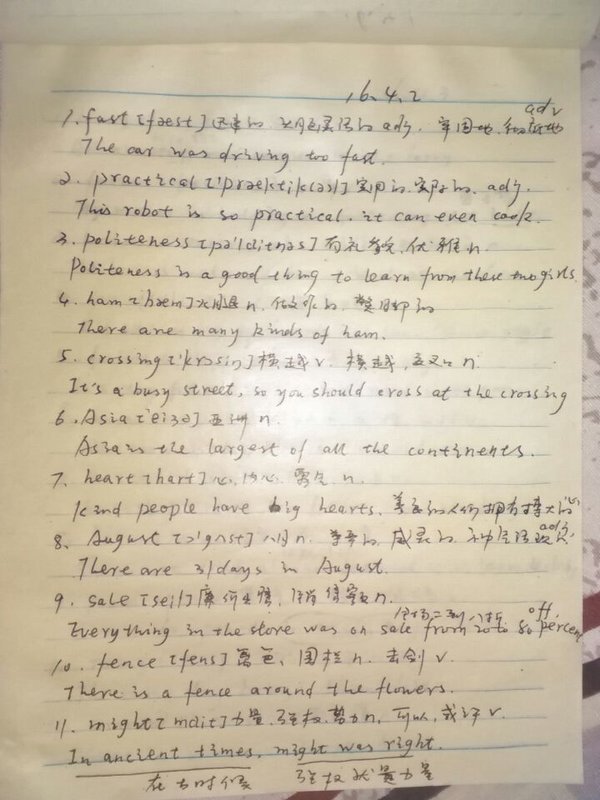 16.4.2
adv
1. fast [fæst] 迅速的 adj. 牢固地
The car was driving too fast.
2. practical ['præktik(ə)l] 实用的.实际的. adj.
This robot is so practical. it can even cook.
3. politeness [pə'laitnəs] 有礼貌, 优雅 n.
Politeness is a good thing to learn from these two girls.
4. ham ['hæm] 火腿 n.
There are many kinds of ham.
5. crossing ['krɔsiŋ] 横越 v. 横越, n.
It's a busy street, so you should cross at the crossing
6. Asia ['eiʒə] 亚洲 n.
Asia is the largest of all the continents.
7. heart [hart] 心, 内心, n.
Kind people have big hearts. 善良的人们拥有
8. August 八月 n. 威灵的 adj.
There are 31 days in August.
9. sale [seil] 廉价出售, n.
off.
Everything in the store was on sale from 20 to 80 percent
10. fence [fens] 围栏 n. 击剑 v.
There is a fence around the flowers.
11. might [mait] 力量. 强权. 势力 n, 可以, 或许 v.
In ancient times, might was right.
在古时候 强权就是力量